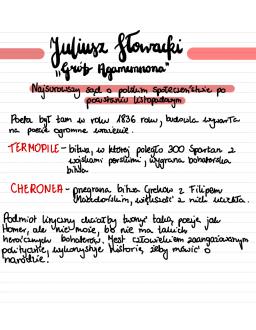 Juliusz Słowacki
"Grób Agamemnona"
Najsurowszy sąd o polskim społeczeństwie po
powstaniu listopadowym
Poeta był tam w roku 1836 roku, budowla wywarła
na poecie ogromne wrażenie.
TERMOPILE - bitwa, w której poległo 300 Spartan z
wojskami perskimi, wygrana bohaterska
bitwa
CHERONEA - przegrana bitwa Greków z Filipem
Macedońskim, większość z nich uciekła.
Podmiot liryczny chciałby tworzyć taką poezję jak
Homer, ale nie może, bo nie ma takich
heroicznych bohaterów. Jest człowiekiem zaangażowanym
politycznie, wykorzystuje historię, żeby mówić o
narodzie.